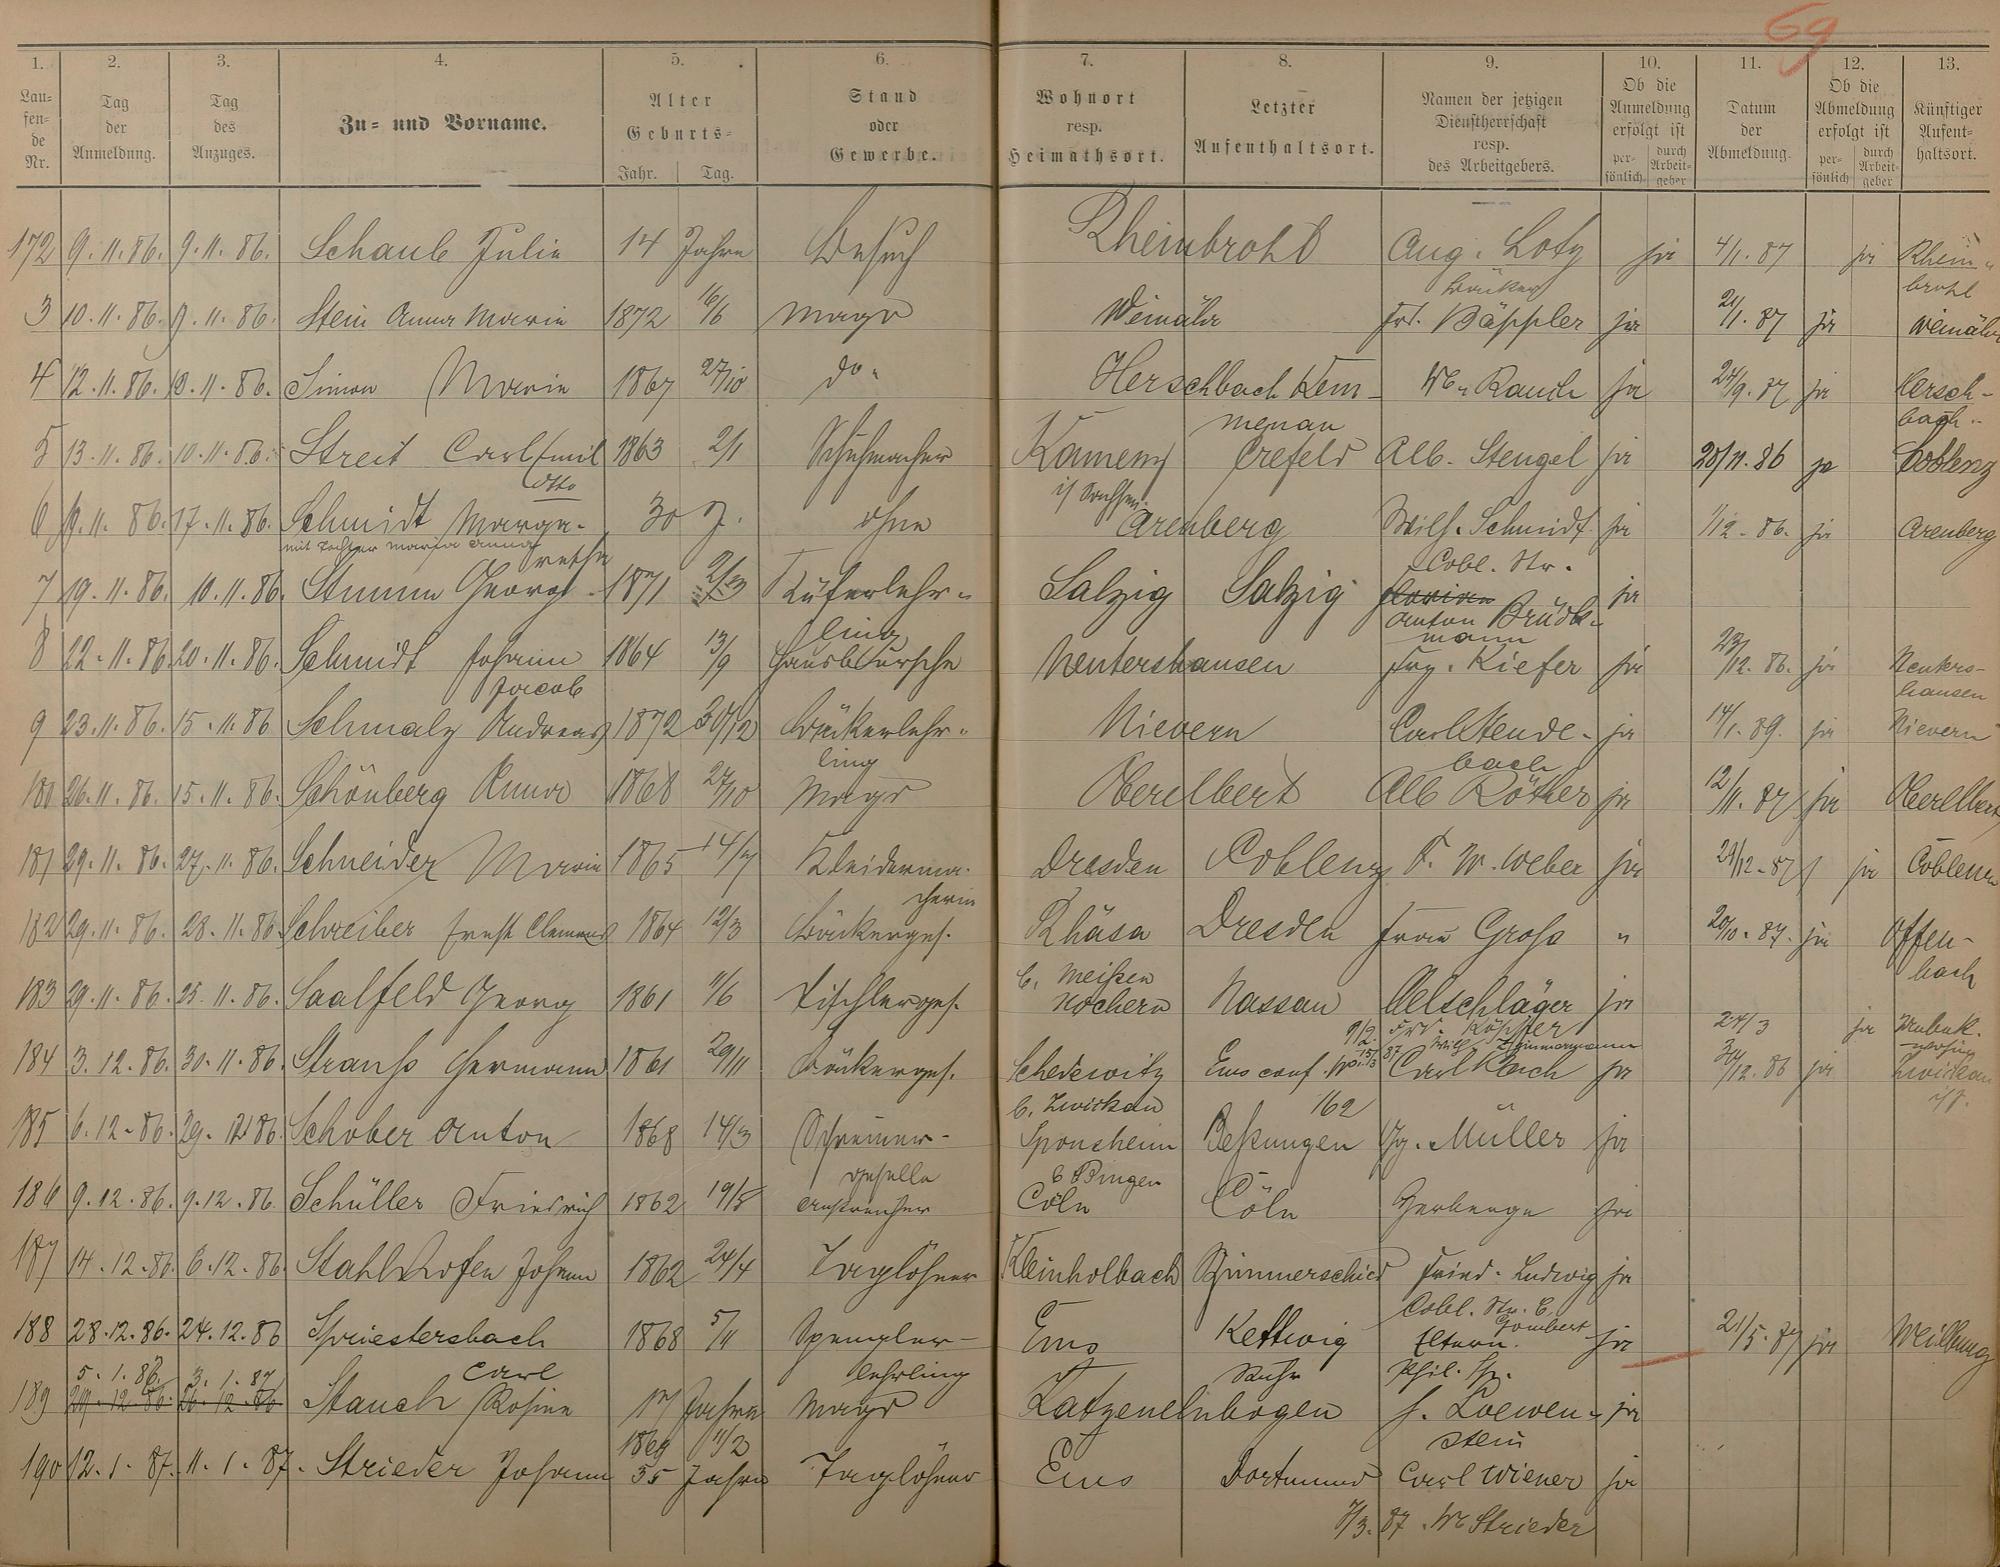 69
1. 2. 3. 4. 5. 6. 7. 8. 9. 10. 11. 12. 13.
Laufende Nr. Tag der Anmeldung. Tag des Anzuges. Zu= und Vorname. Alter Geburts= Jahr. Tag. Stand oder Gewerbe. Wohnort resp. Heimathsort. Letzter Aufenthaltsort. Namen der jetzigen Dienstherrschaft resp. des Arbeitgebers. Ob die Anmeldung erfolgt ist persönlich durch Arbeitgeber Datum der Abmeldung. Ob die Abmeldung erfolgt ist persönlich durch Arbeitgeber Künftiger Aufenthaltsort.
172 9.11.86. 9.11.86. Schaub Julie 14 Jahre Besuch Rheinbrohl Aug. Loty ja 4/1.87 ja Rhein-
Bäcker brohl
3 10.11.86. 9.11.86. Stein Anna Marie 1872 16/6 Magd Weinähr Frd. Bäppler ja 21/1.87 ja Weinähr
4 12.11.86. Simon Marie 1867 27/10 do. Herschbach Kem- Ww. Rauch ja 24/9.87 ja Hersch-
menau bach
5 13.11.86. 10.11.86. Streit Carl Emil 1863 2/1 Schuhmacher Kamenz Crefeld Alb. Stengel ja 20/11.86 ja Coblenz
Otto i/ Sachsen
6 17.11.86. Schmidt Marga- 30 J. ohne Arenberg Wilh. Schmidt ja 1/12.86. ja Arenberg
mit Tochter Maria Anna retha Cobl. Str.
7 19.11.86. 10.11.86. Stumm Georg 1871 2/3 Küferlehr- Salzig Salzig ja
ling Anton Brück-
mann
8 22.11.86. 20.11.86. Schmidt Johann 1864 13/9 Hausbursche Nentershausen Kiefer ja 23/12.86. ja Nenters-
Jacob hausen
9 23.11.86. 15.11.86 Schmalz Andreas 1872 30/12 Bäckerlehr- Nievern Carl Stende- ja 14/1.89. ja Nievern
ling bach
180 26.11.86. 15.11.86. Schönberg Anna 1868 27/10 Magd Oberelbert Alb Röther ja 12/11.87 ja Oberelbert
181 29.11.86. 27.11.86. Schneider Marie 1865 14/7 Kleiderma- Dresden Coblenz F. W. Weber ja 24/12.87 ja Coblenz
cherin
182 29.11.86. 28.11.86. Schreiber Ernst Clemens 1864 12/3 Bäckerges. Khäsa Dresden Frau Groß " 20/10.87. ja Offen-
b. Meißen bach
183 29.11.86. 25.11.86. Saalfeld Georg 1861 1/6 Tischlerges. Nochern Nassau Oelschläger ja
9/2. Frd. Köpper 24/3 ja
Wilh. Zimmermann
184 3.12.86. 30.11.86. Strauß Hermann 1861 29/11 Bäckerges. Schedewitz Ems Carl Kach ja 30/12.86 ja Zwickau
b. Zwickau 162
185 6.12.86. Schober Anton 1868 14/3 Schreiner- Sponsheim Beßungen Müller ja
geselle b Bingen
186 9.12.86. 9.12.86. Schüller Friedrich 1862 19/8 Anstreicher Cöln Cöln Herberge ja
187 14.12.86. 6.12.86. Stahlhofen Johann 1862 24/4 Taglöhner Kleinholbach Zimmerschied Fried. Ludwig ja
Cobl. Str. b.
Gombert
188 28.12.86. 24.12.86 Spriestersbach 1868 5/11 Spengler- Ems Kettwig Eltern. ja 21/5.87 ja Weilburg
Carl lehrling Ruhr
5.1.86. 3.1.87
189 29.12.86. 26.12.86 Stauch Rosine 17 Jahre Magd Katzenelnbogen Loewen- ja
stein
1869 11/2
190 12.1.87. 11.1.87. Strieder Johann 35 Jahre Taglöhner Ems Dortmund Carl Wiener ja
7/3.87 Strieder